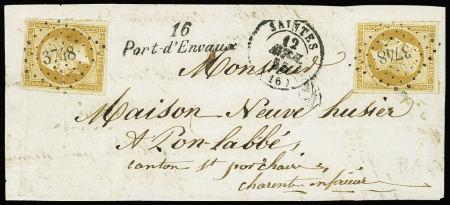 3748
16
Port-d'Envaux
SAINTES
12
(16)
3748
Monsieur
Maison Neuve husier
A Pon-labbé,
canton st porchaire,
charent inférieur